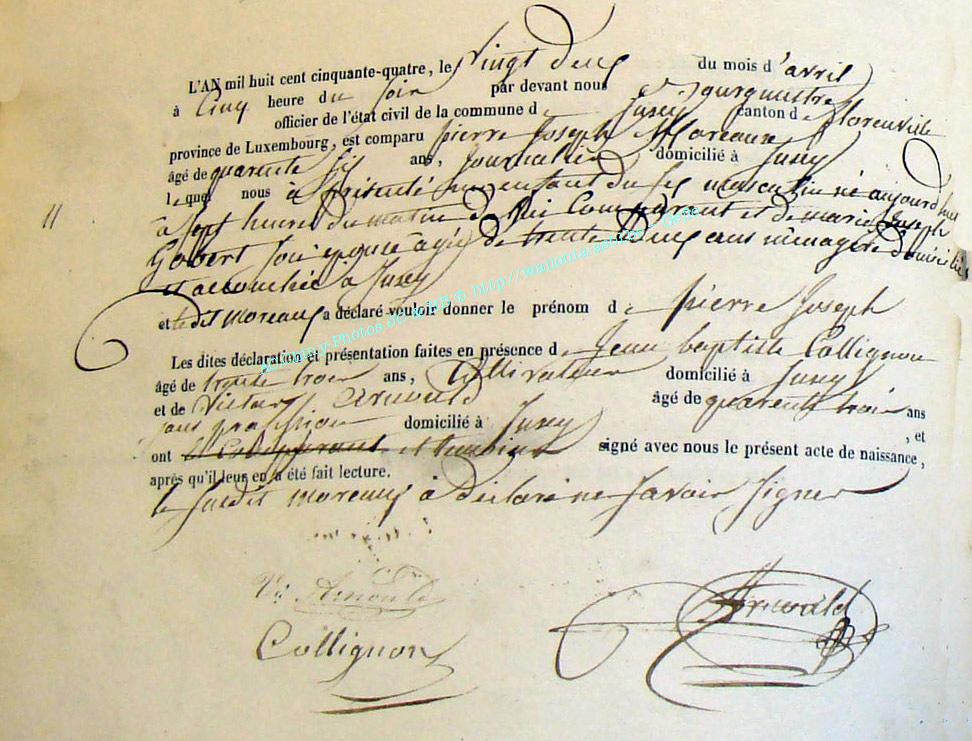 L'AN mil huit cent cinquante-quatre, le vingt deux du mois d'avril
à Cinq heure du soir par devant nous Bourgmestre
officier de l'état civil de la commune de Jusey canton de florenville
province de Luxembourg, est comparu pierre Joseph Moreaux
âgé de quarente six ans, Journallier domicilié à Jusey
lequel nous à présenté un enfant du sex masculin né aujourd'hui
11
à sept heures du matin de lui Comparant et de marie Joseph
Gobert son épouse agée de trente deux ans ménagère domiciliée
et accouchée à Jusey
et ledit moreaux a déclaré vouloir donner le prénom de pierre Joseph
Les dites déclaration et présentation faites en présence de Jean baptiste Collignon
âgé de trente trois ans, Cultivateur domicilié à Jusey
et de Victor Arnould âgé de quarente trois ans
sans profession domicilié à Jusey , et
ont et temoins signé avec nous le présent acte de naissance,
après qu'il leur en a été fait lecture.
le susdit moreaux à déclaré ne savoir signer
Vr Arnould
Arnould
Collignon